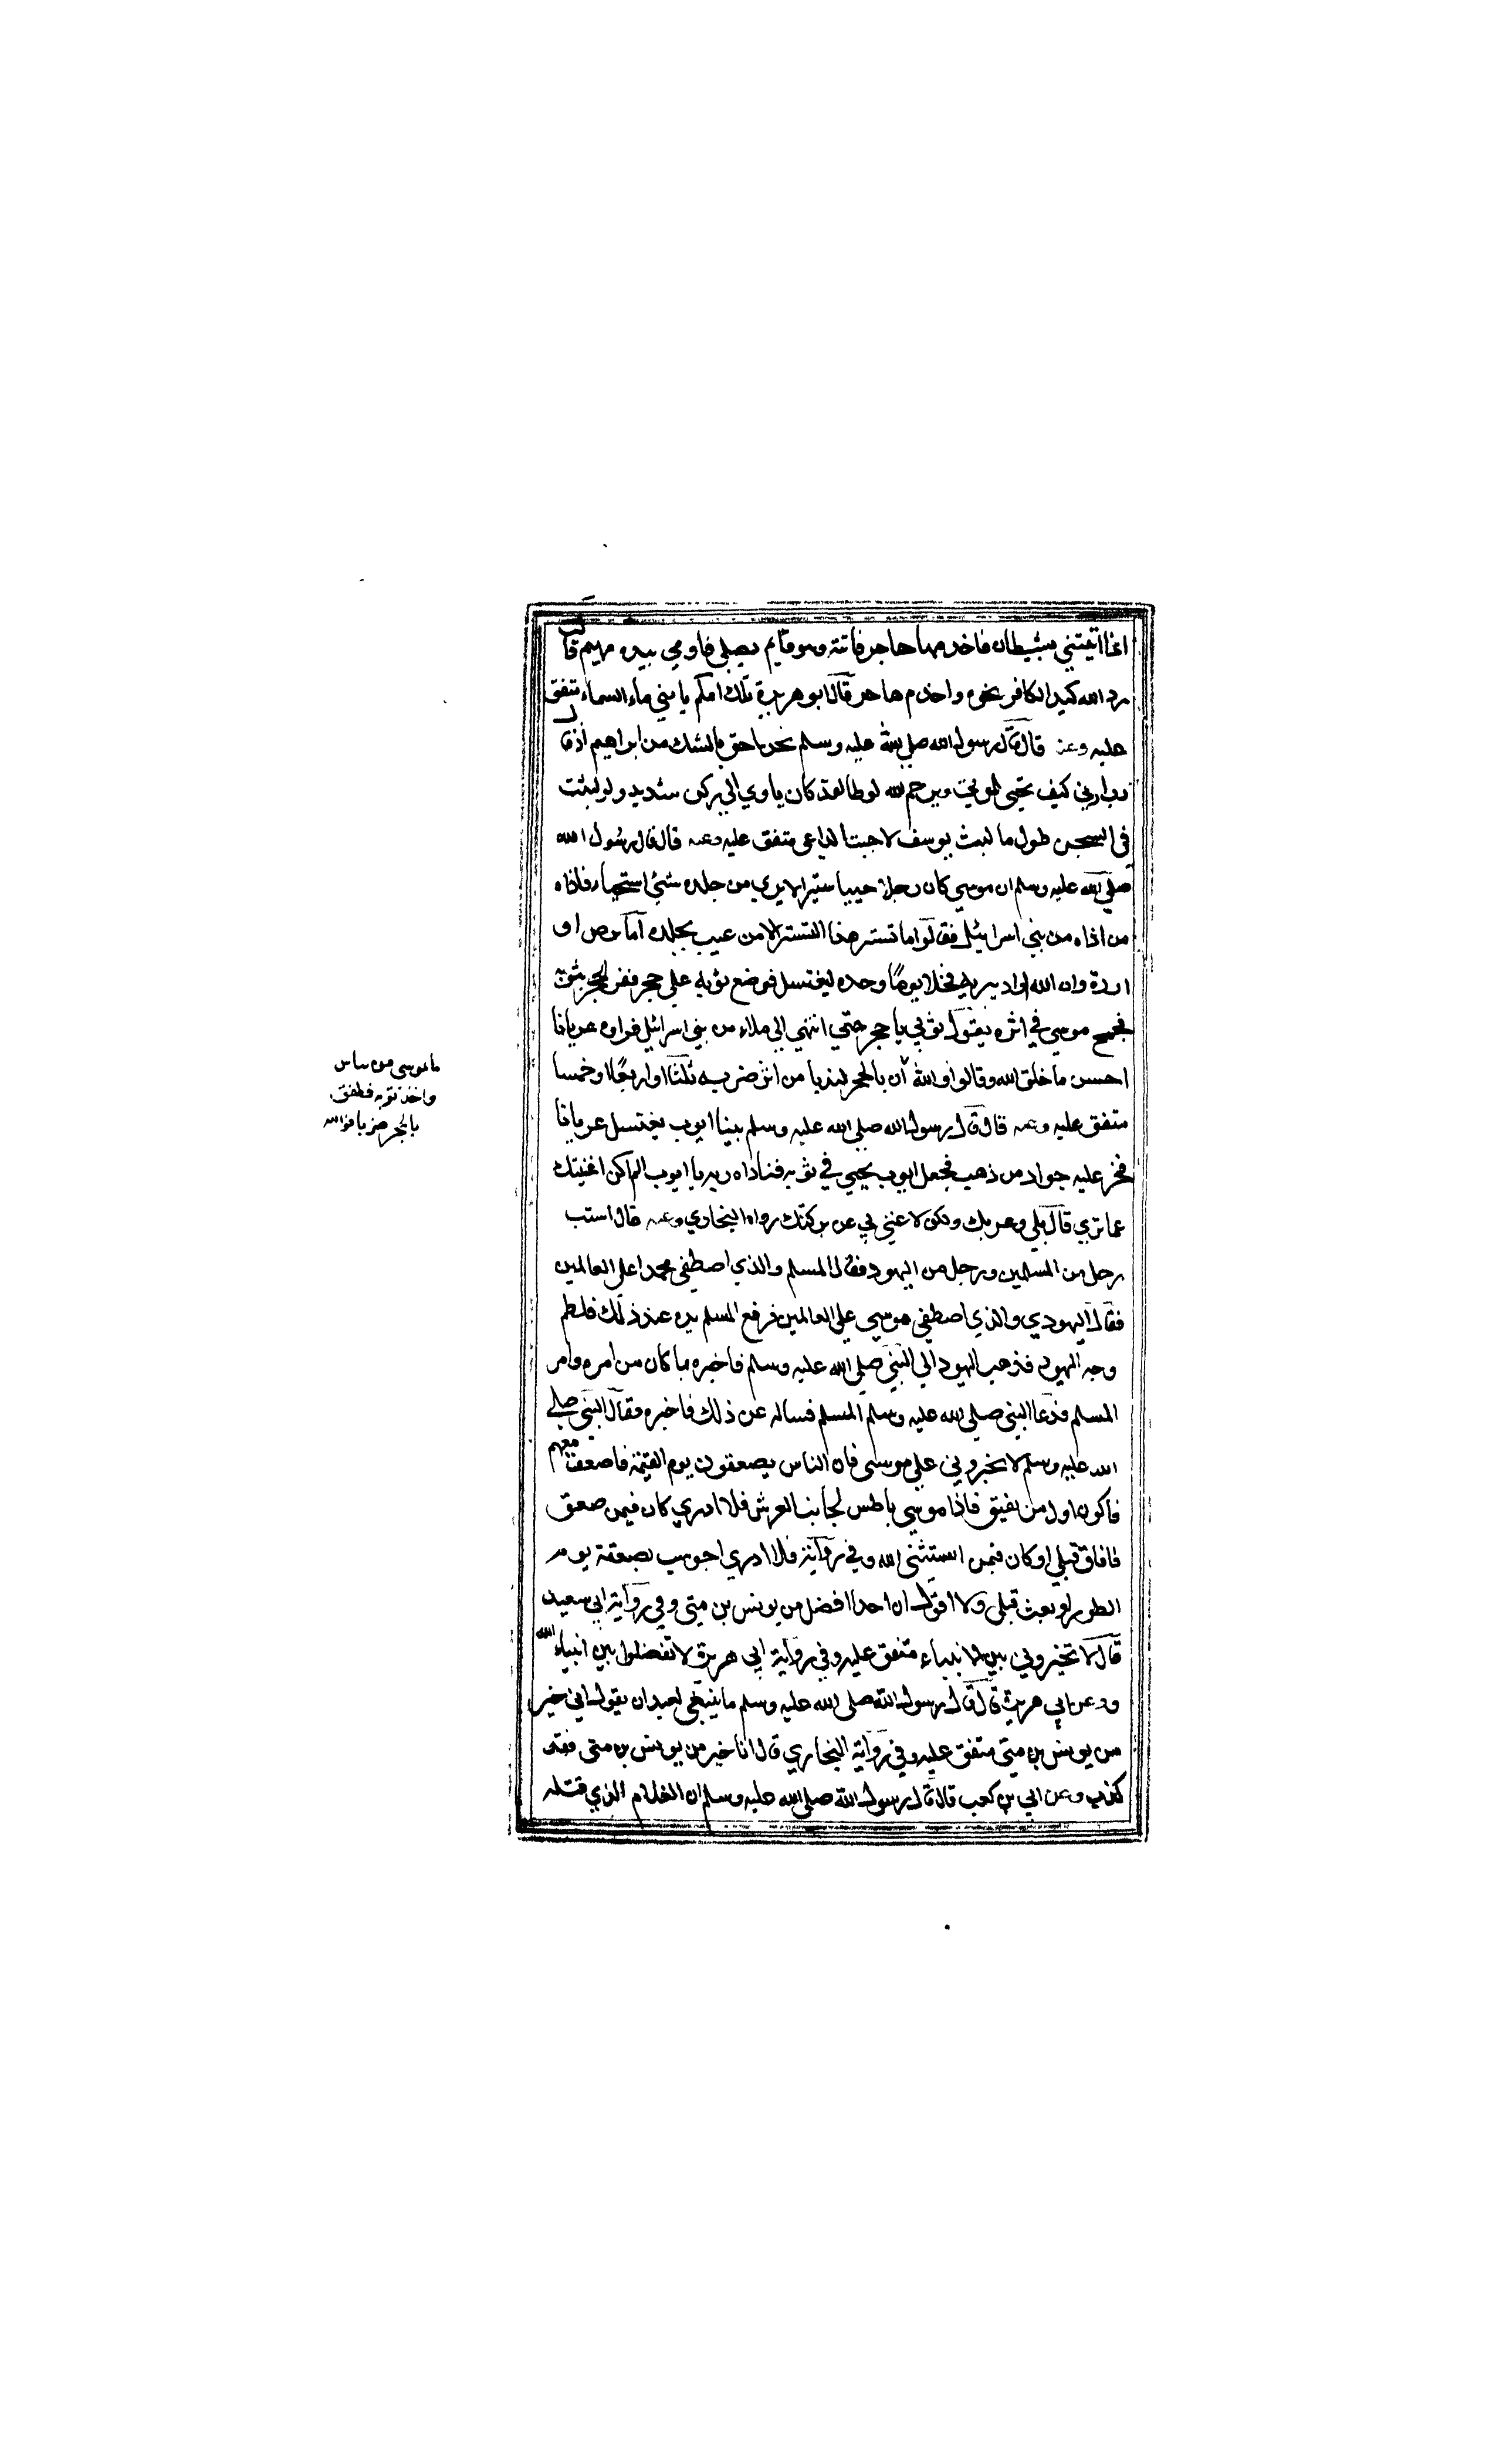 انما اتيتني بشيطان فاخدمها هاجر فاتته وهو قايم يصلي فاومي بيده مهيم قالت
رد الله كيد الكافر نحره واخدم هاجر قال ابو هريرة تلك امكم يا بني ماء السماء متفق
عليه وعنه قال قال رسول الله صلى الله عليه وسلم نحن احق بالشك من ابراهيم اذ قال
رب ارني كيف تحيى الموتى ويرحم الله لوطا لقد كان ياوي الي ركن شديد ولو لبثت
في السجن طول ما لبث يوسف لاجبت الداعي متفق عليه وعنه قال قال رسول الله
صلى الله عليه وسلم ان موسي كان رجلا حييا ستيرا لا يري من جلده شئ استحياء فاذاه
من اذاه من بني اسرائيل فقالوا ما تستر هذا التستر الا من عيب بجلده اما برص او
ادرة وان الله اراد يبريه فخلا يوما وحده ليغتسل فوضع ثوبه علي حجر ففر الحجر بثوبه
فجمح موسي في اثره يقول ثوبي يا حجر حتي انتهي الي ملاء من بني اسرائيل فراوه عريانا
احسن ما خلق الله وقالوا والله ان بالحجر لندبا من اثر ضربه ثلثا او اربعا او خمسا
متفق عليه وعنه قال قال رسول الله صلى الله عليه وسلم بينا ايوب يغتسل عريانا
فخر عليه جراد من ذهب فجعل ايوب يحثي في ثوبه فناداه ربه يا ايوب الم اكن اغنيتك
عما تري قال بلي وعزتك ولكن لا غني بي عن بركتك رواه البخاري وعنه قال استب
رجل من المسلمين ورجل من اليهود فقال المسلم والذي اصطفى محمدا على العالمين
فقال اليهودي والذي اصطفي موسي علي العالمين فرفع المسلم يده عند ذلك فلطم
وجه اليهود فذهب اليهود الي النبي صلى الله عليه وسلم فاخبره بما كان من امره وامر
المسلم فدعا النبي صلى الله عليه وسلم المسلم فساله عن ذلك فاخبره فقال النبي صلى
الله عليه وسلم لا تخيروني علي موسى فان الناس يصعقون يوم القيمة فاصعق معهم
فاكون اول من يفيق فاذا موسي باطش بجانب العرش فلا ادري كان فيمن صعق
فافاق قبلي او كان فيمن استثنى الله وفي رواية فلا ادري احوسب بصعقة يوم
الطور او بعث قبلي ولا اقول ان احدا افضل من يونس بن متى وفي رواية ابي سعيد
قال لا تخيروني بين الانبياء متفق عليه وفي رواية ابي هريرة لا تفضلوا بين انبياء الله
وعن ابي هريرة قال قال رسول الله صلى الله عليه وسلم ما ينبغي لعبد ان يقول اني خير
من يونس بن متى متفق عليه وفي رواية البخاري قال انا خير من يونس بن متى فقد
كذب وعن ابي بن كعب قال قال رسول الله صلى الله عليه وسلم ان الغلام الذي قتله
ما موسى من باس
واخذ ثوبه فطفق
بالحجر ضربا فوالله